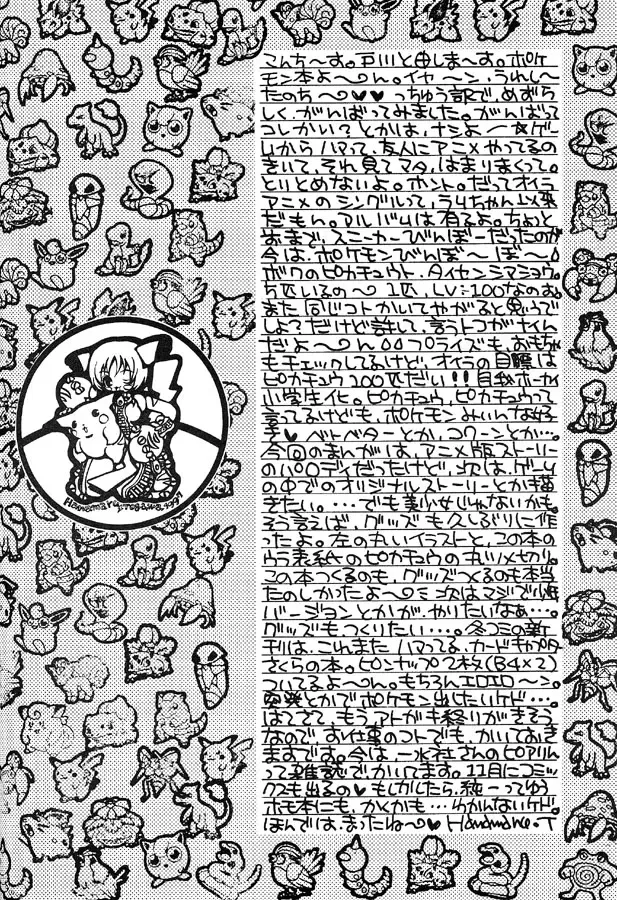 こんち〜す。戸川と申しま〜す。ポケ
モン本よ〜〜ん。イヤ〜ン、うれし〜
たのち〜♡♥ っちゅう訳で、めずら
しく、がんばってみました。がんばって
コレかい?とかは、ナシよ――☆ゲー
ムからハマって、友人にアニメやってるの
きいて、それ見てマタ、はまりまくって。
とどめないよ。ホント。だってオイラ
アニメのシングルって、うりちゃん以来
だもん。アルバムは有るよ。ちょっと
おまで、スニーカーびんぼーだったのが
今は、ポケモンびんぼ〜ぼ〜。
ボクのピカチュウト、タイセンシマショウ。
5匹いるの〜 1匹、LV:100なのよ。
また同じコトかいてやがると思うで
しょ?だけど許して、言うトコがナイん
だよ〜〜ん。プライズも、おもちゃ
もチェックしてるけど、オイラの目標は
ピカチュウ100匹だい!!目我ホーカイ
小学生化。ピカチュウ、ピカチュウって
言ってるけども、ポケモンみいんな好
き♥ベトベターとか、コクーンとか…。
今回のまんがは、アニメ版ストーリー
のパロディだったけど、次は、ゲーム
の中でのオリジナルストーリーとか描
きたい。...でも美少女じゃないかも。
そう言えば、グッズも久しぶりに作
ったよ。左の丸いイラストと、この本の
ウラ表紙のピカチュウの丸いメ切り。
この本つくるのも、グッズつくるのも本当
たのしかったよ〜ミ次はマジで
バージョンとかが、やりたいなぁ…。
グッズもつくりたい…。冬コミの新
刊は、これまたハマってる、カードキャプタ
さくらの本。ピンナップ2枚(B4×2)
ついてるよ〜ん。もちろんエロエロ〜ン。
突発とかでポケモン出したいケド…。
はてさて、もうアトガキ終りがきそう
なので、お仕事のコトでも、かいておき
ますです。今は、一水社さんのピアリイ
って雑誌でかいてます。11月にコミッ
クスも出るの♥もしかしたら、純一ってゆう
ホモ本にも、かくかも…わかんないケド。
ほんでは、まったね〜♥ Hanamaru.T
Hanamaru.Togawa.1997